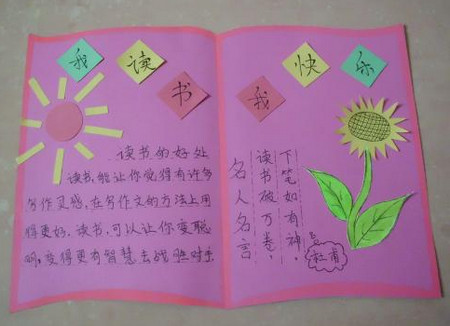 我读书
我快乐
读书的好处
读书,能让你觉得有许多
写作灵感,在写作文的方法上用
得更好。读书,可以让你变聪
明,变得更有智慧去战胜对手
名人名言
读书破万卷,
下笔如有神。
杜甫